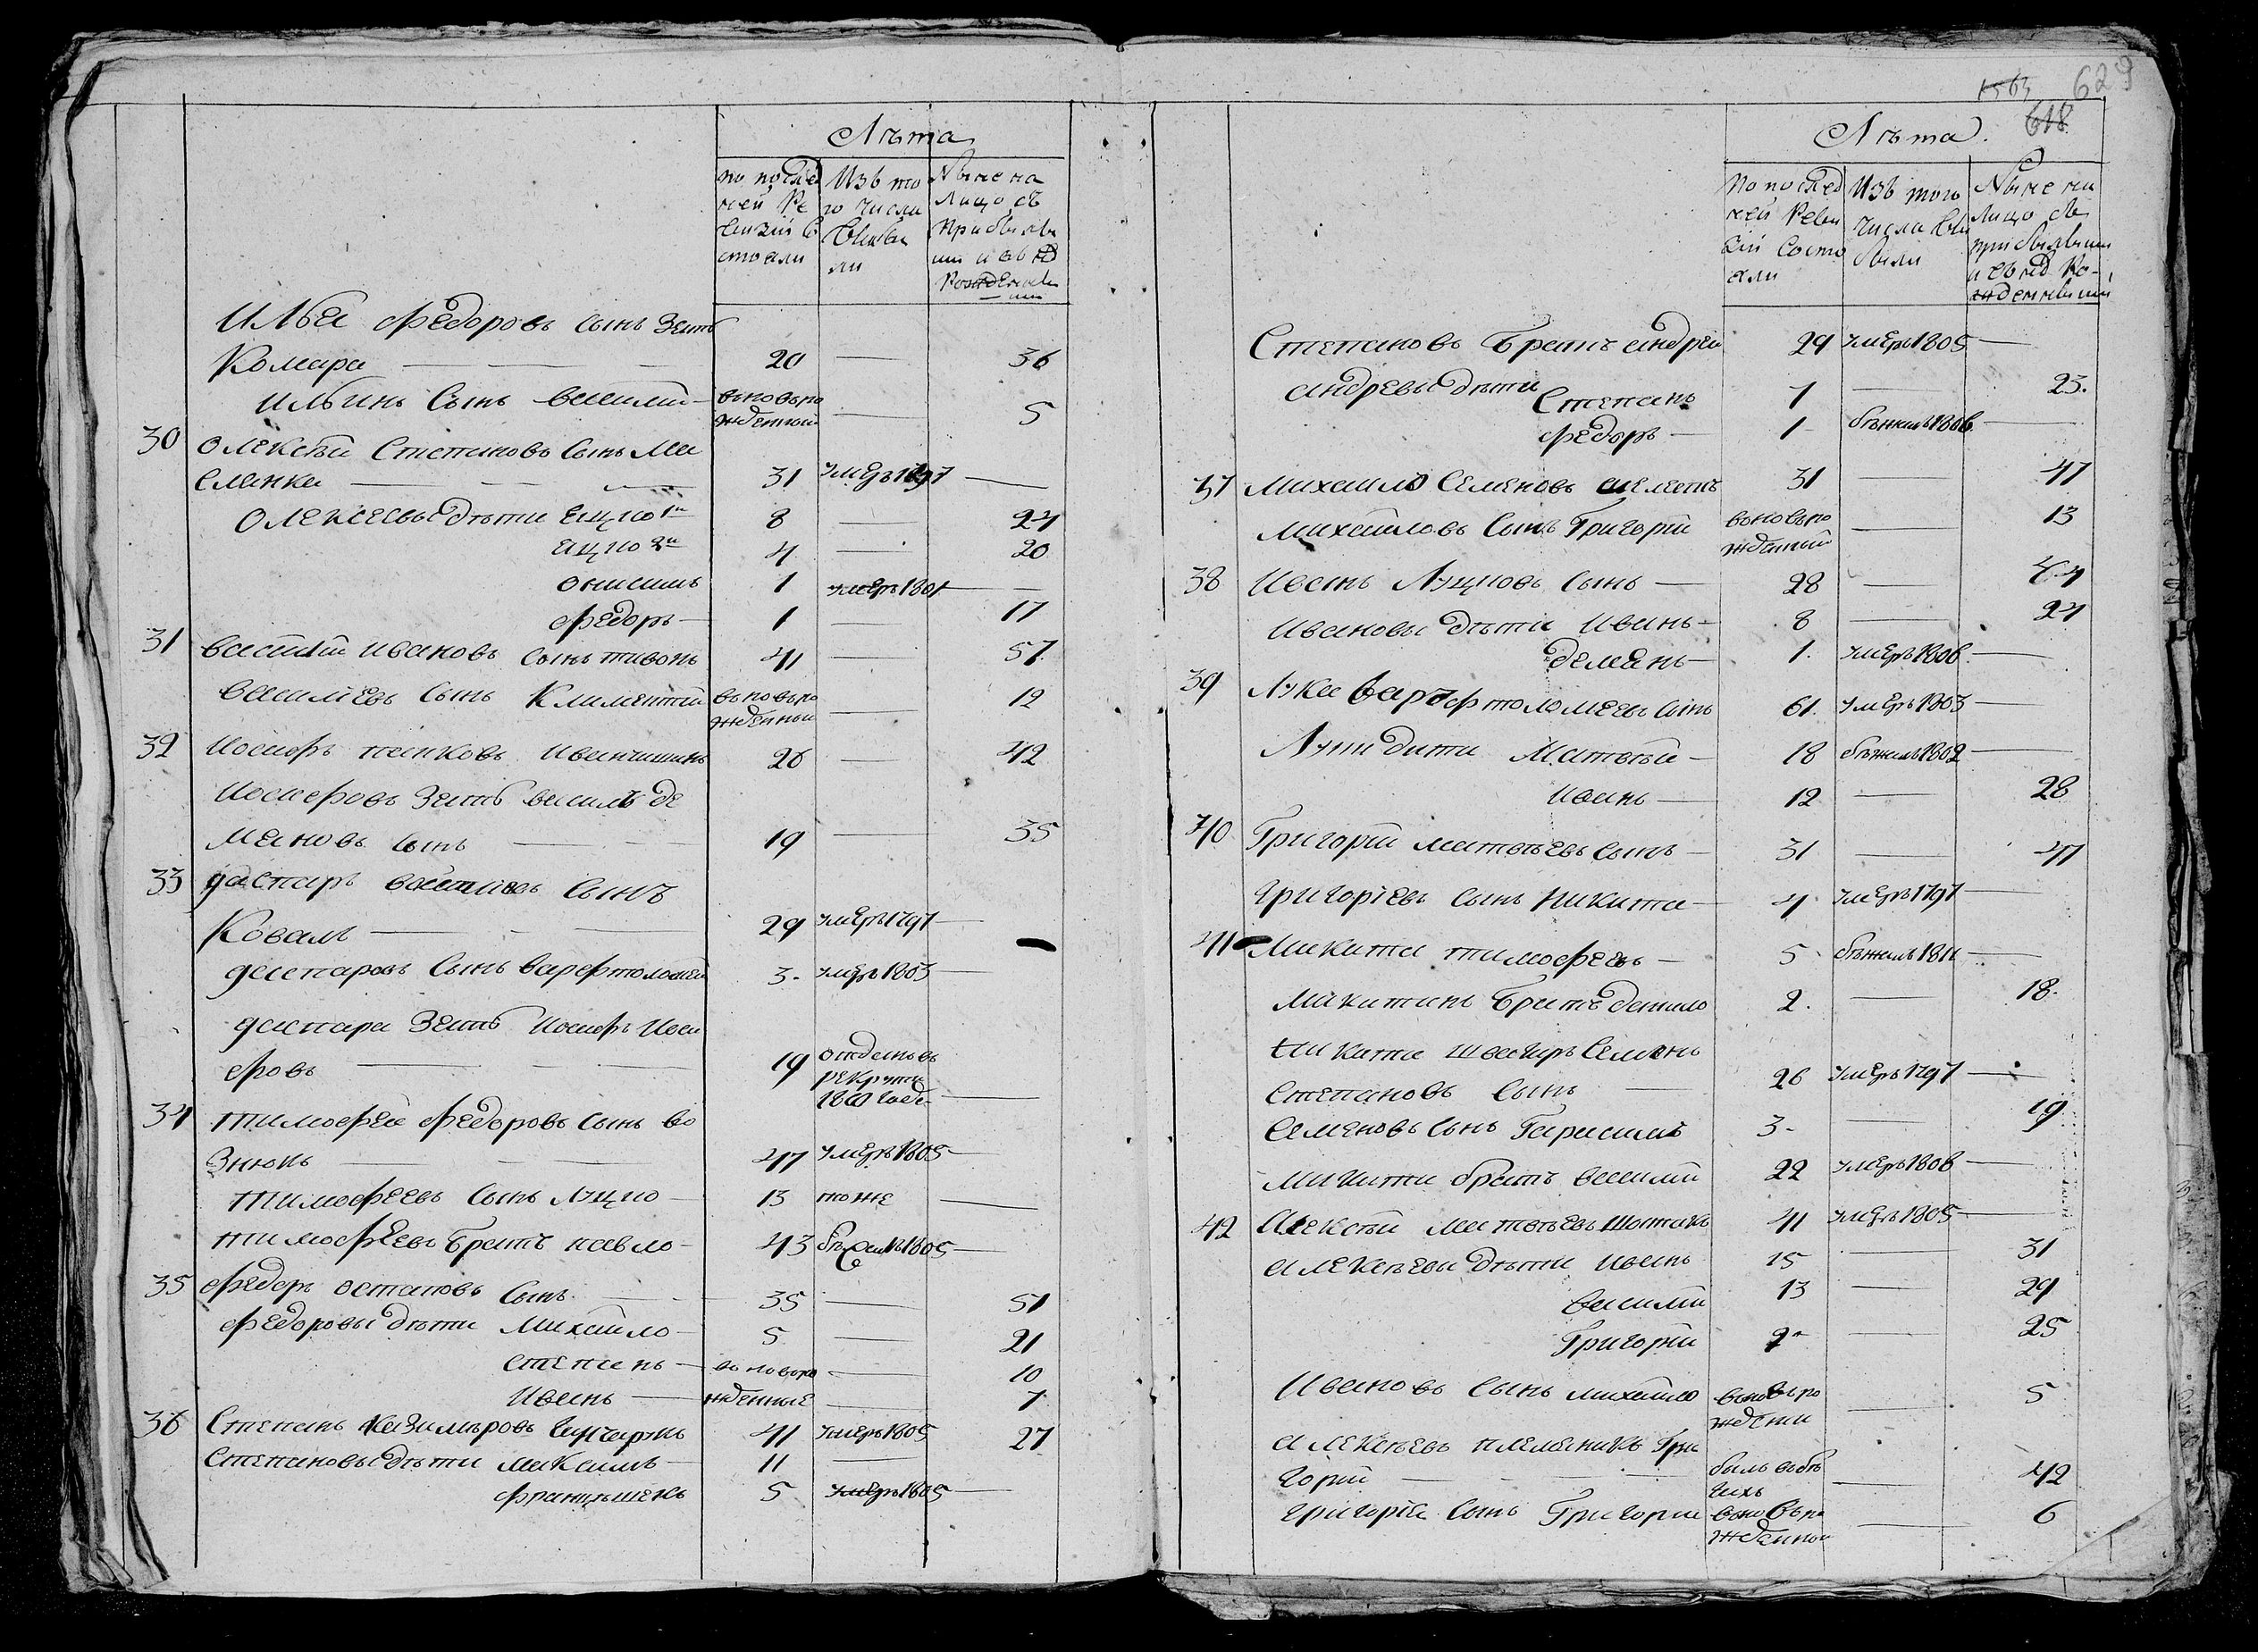 Лѣта
по послед
ней Ре
визіи со
стояли
Изъ то
го числа
выбы
ли
Ныне на
лицо съ
прибывшими
Илья Федоровъ сынъ зять
Комара — 20 — 36
Ильинъ сынъ василий вновьро
жденный — 5
30 Олексѣй Степановъ сынъ Ма
сленка — 31 умеръ 1797 —
Олексеевы дѣти Яцко 1й 8 — 24
Яцко 2й 4 — 20
онисимъ 1 умеръ 1801 —
Федоръ — 1 — 17
31 василий ивановъ сынъ 41 — 57
василіевъ сынъ Климентій вновьро
жденный — 12
32 Иосифъ 26 — 42
Иосифовъ зять василь де
мяновъ сынъ — 19 — 35
33 гаспаръ сынъ
Коваль — 29 умеръ 1797 —
гаспаровъ сынъ варфтоломей 3 умеръ 1803 —
гаспара зять Иосифъ Иоси
фовъ — 19 отданъ въ
рекруты
годе —
34 тимофей Федоровъ сынъ во
знюкъ — 47 умеръ 1805 —
тимофеевъ сынъ луцко — 13 тоже —
тимофѣевъ братъ павло — 43 1805 —
35 Федоръ остаповъ сынъ — 35 — 51
Федоровы дѣти Михайло — 5 — 21
степанъ — вновьро — 10
Иванъ — жденные — 7
36 Степанъ Казимѣровъ 41 умеръ 1805
Степановы дѣти Максимъ — 11 — 27
францышекъ 5 умеръ 1805 —
1563 629
618
Лѣта.
По послед
ней Реви
зіи состо
яли
Изъ того
числа вы
были
Ныне на
лицо съ
прибывшими
Степановъ братъ андрей 29 умеръ 1805 —
андреевы дѣти Степанъ 7 — 23.
Федоръ — 1 бѣжалъ 1806 —
37 Михайло Семеновъ 31 — 47
Михайловъ сынъ Григорій вновьро
жденный — 13
38 Иванъ Луцковъ сынъ — 28 — 44
Ивановы дѣти иванъ — 8 — 24
демянъ — 1. умеръ 1806. —
39 Лука варфтоломеевъ сынъ 61. умеръ 1803 —
Луки дети Матвѣй — 18 бѣжалъ 1802 —
иванъ — 12 — 28
40 Григорій матвѣевъ сынъ — 31 — 47
Григоріевъ сынъ Никита — 4 умеръ 1797 —
41 Микита тимофеевъ — 5 бѣжалъ 1811 —
Микитинъ братъ данило 2. — 18.
Микиты швагеръ Семенъ
Степановъ сынъ — 26 умеръ 1797 —
Семеновъ сынъ Гарасимъ 3 — 19
Микиты братъ василий 22 умеръ 1806 —
42 Алексѣй матвѣевъ 41 умеръ 1805 —
Алексѣевы дѣти иванъ 15 — 31
василий 13 — 29
Григорій — 25
Ивановъ сынъ михайло вновьро
жденный — 5
Алексѣевъ племяникъ Гри
горій — былъ въ бѣ
гахъ — 42
Григорія сынъ Григорій вновьро
жденный — 6